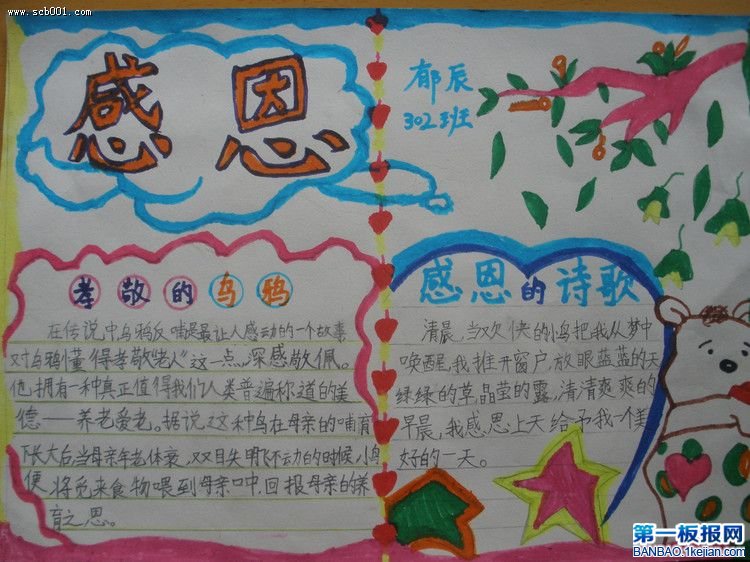 www.scb001.com
感恩
郁辰
302班
孝敬的乌鸦
在传说中乌鸦反哺是最让人感动的一个故事
对乌鸦懂“得孝敬老人”这一点,深感敬佩。
他拥有一种真正值得我们人类普遍称道的美
德——养老爱老。据说,这种鸟在母亲的哺育
下长大后,当母亲年老体衰,双目失明飞不动的时候,小鸟
便将觅来食物喂到母亲口中,回报母亲的养
育之恩。
感恩的诗歌
清晨,当欢快的小鸟把我从梦中
唤醒,我推开窗户,放眼蓝蓝的天
绿绿的草,晶莹的露,清清爽爽的
早晨,我感恩上天给予我一个美
好的一天。
第一板报网
BANBAO.1kejian.com